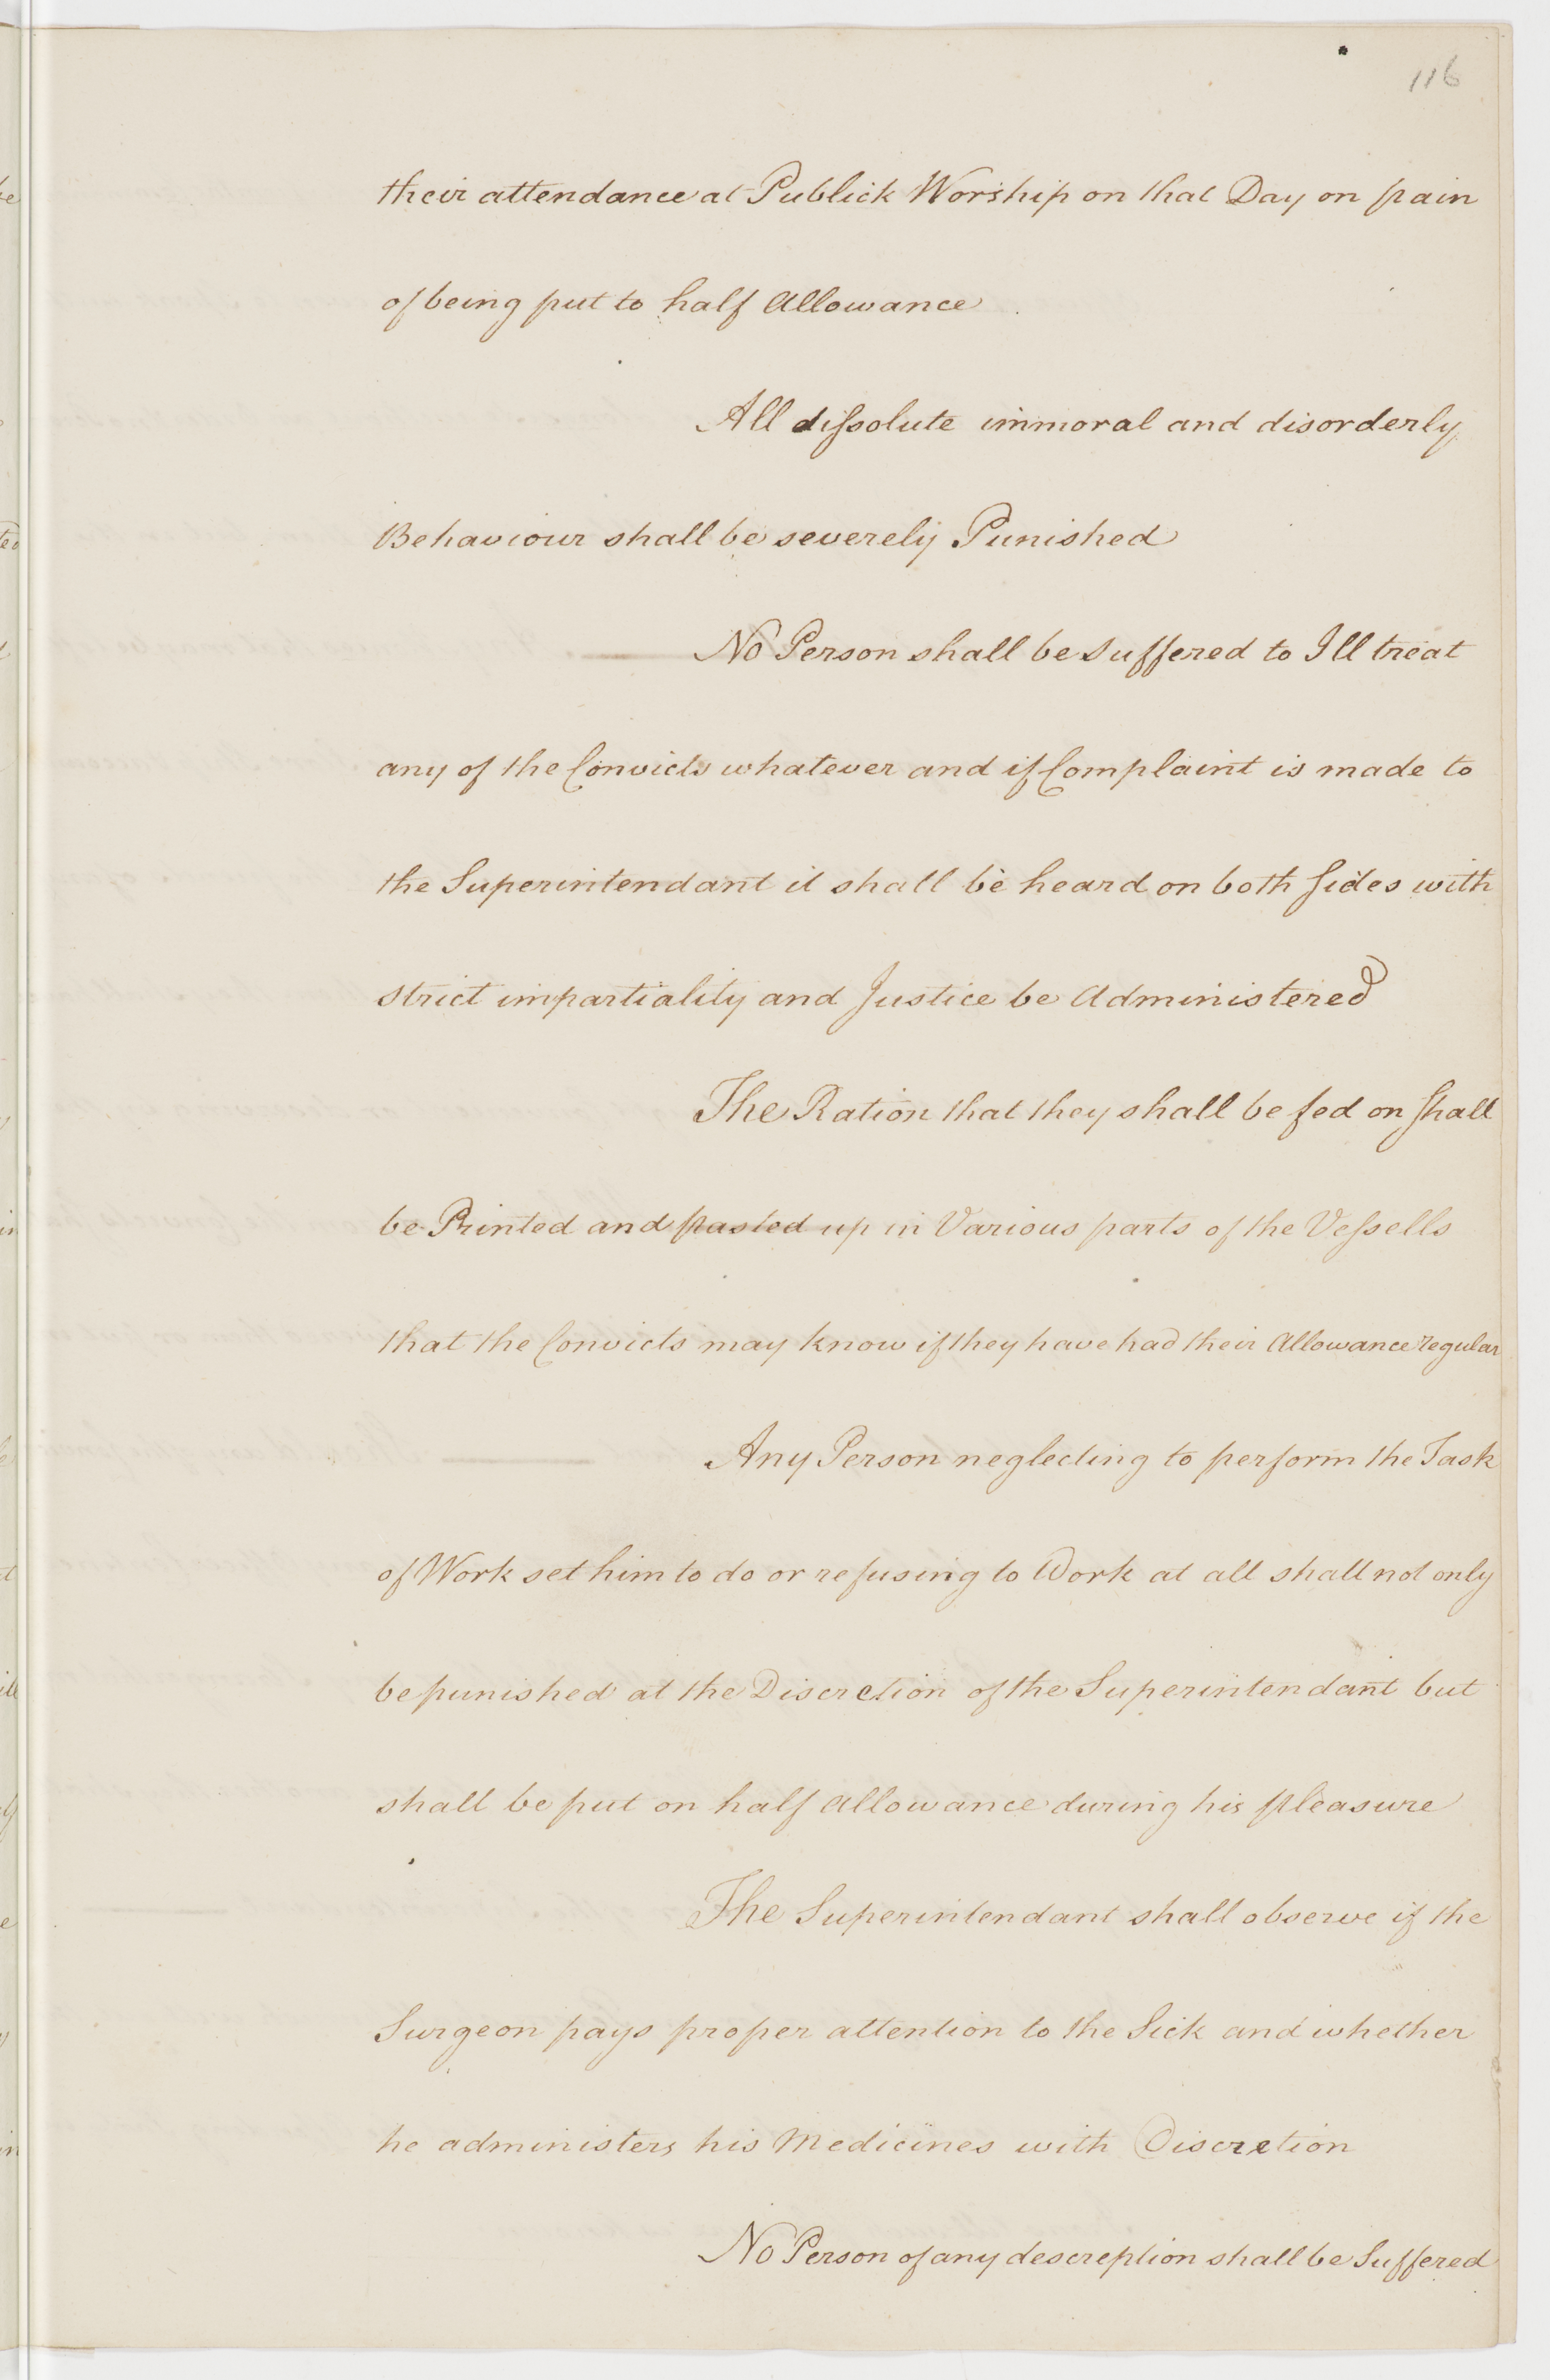 116
their attendance at Publick Worship on that Day on pain
of being put to half Allowance
All dissolute immoral and disorderly
Behaviour shall be severely Punished
No Person shall be suffered to Ill treat
any of the Convicts whatever and if Complaint is made to
the Superintendant it shall be heard on both sides with
strict impartiality and Justice be Administered
The Ration that they shall be fed on shall
be Printed and pasted up in Various parts of the Vessells
that the Convicts may know if they have had their Allowance regular
Any Person neglecting to perform the Task
of Work set him to do or refusing to Work at all shall not only
be punished at the Discretion of the Superintendant but
shall be put on half allowance during his pleasure
The Superintendant shall observe if the
Surgeon pays proper attention to the Sick and whether
he administers his Medicines with Discretion
No Person of any descreption shall be Suffered